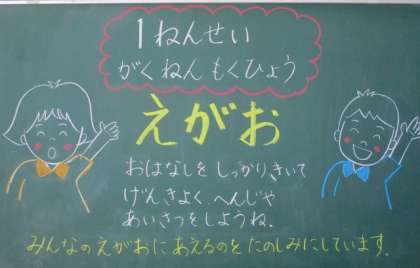 1ねんせい
がくねんもくひょう
えがお
おはなしをしっかりきいて
げんきよく、へんじや
あいさつをしようね。
みんなのえがおにあえるのをたのしみにしています。